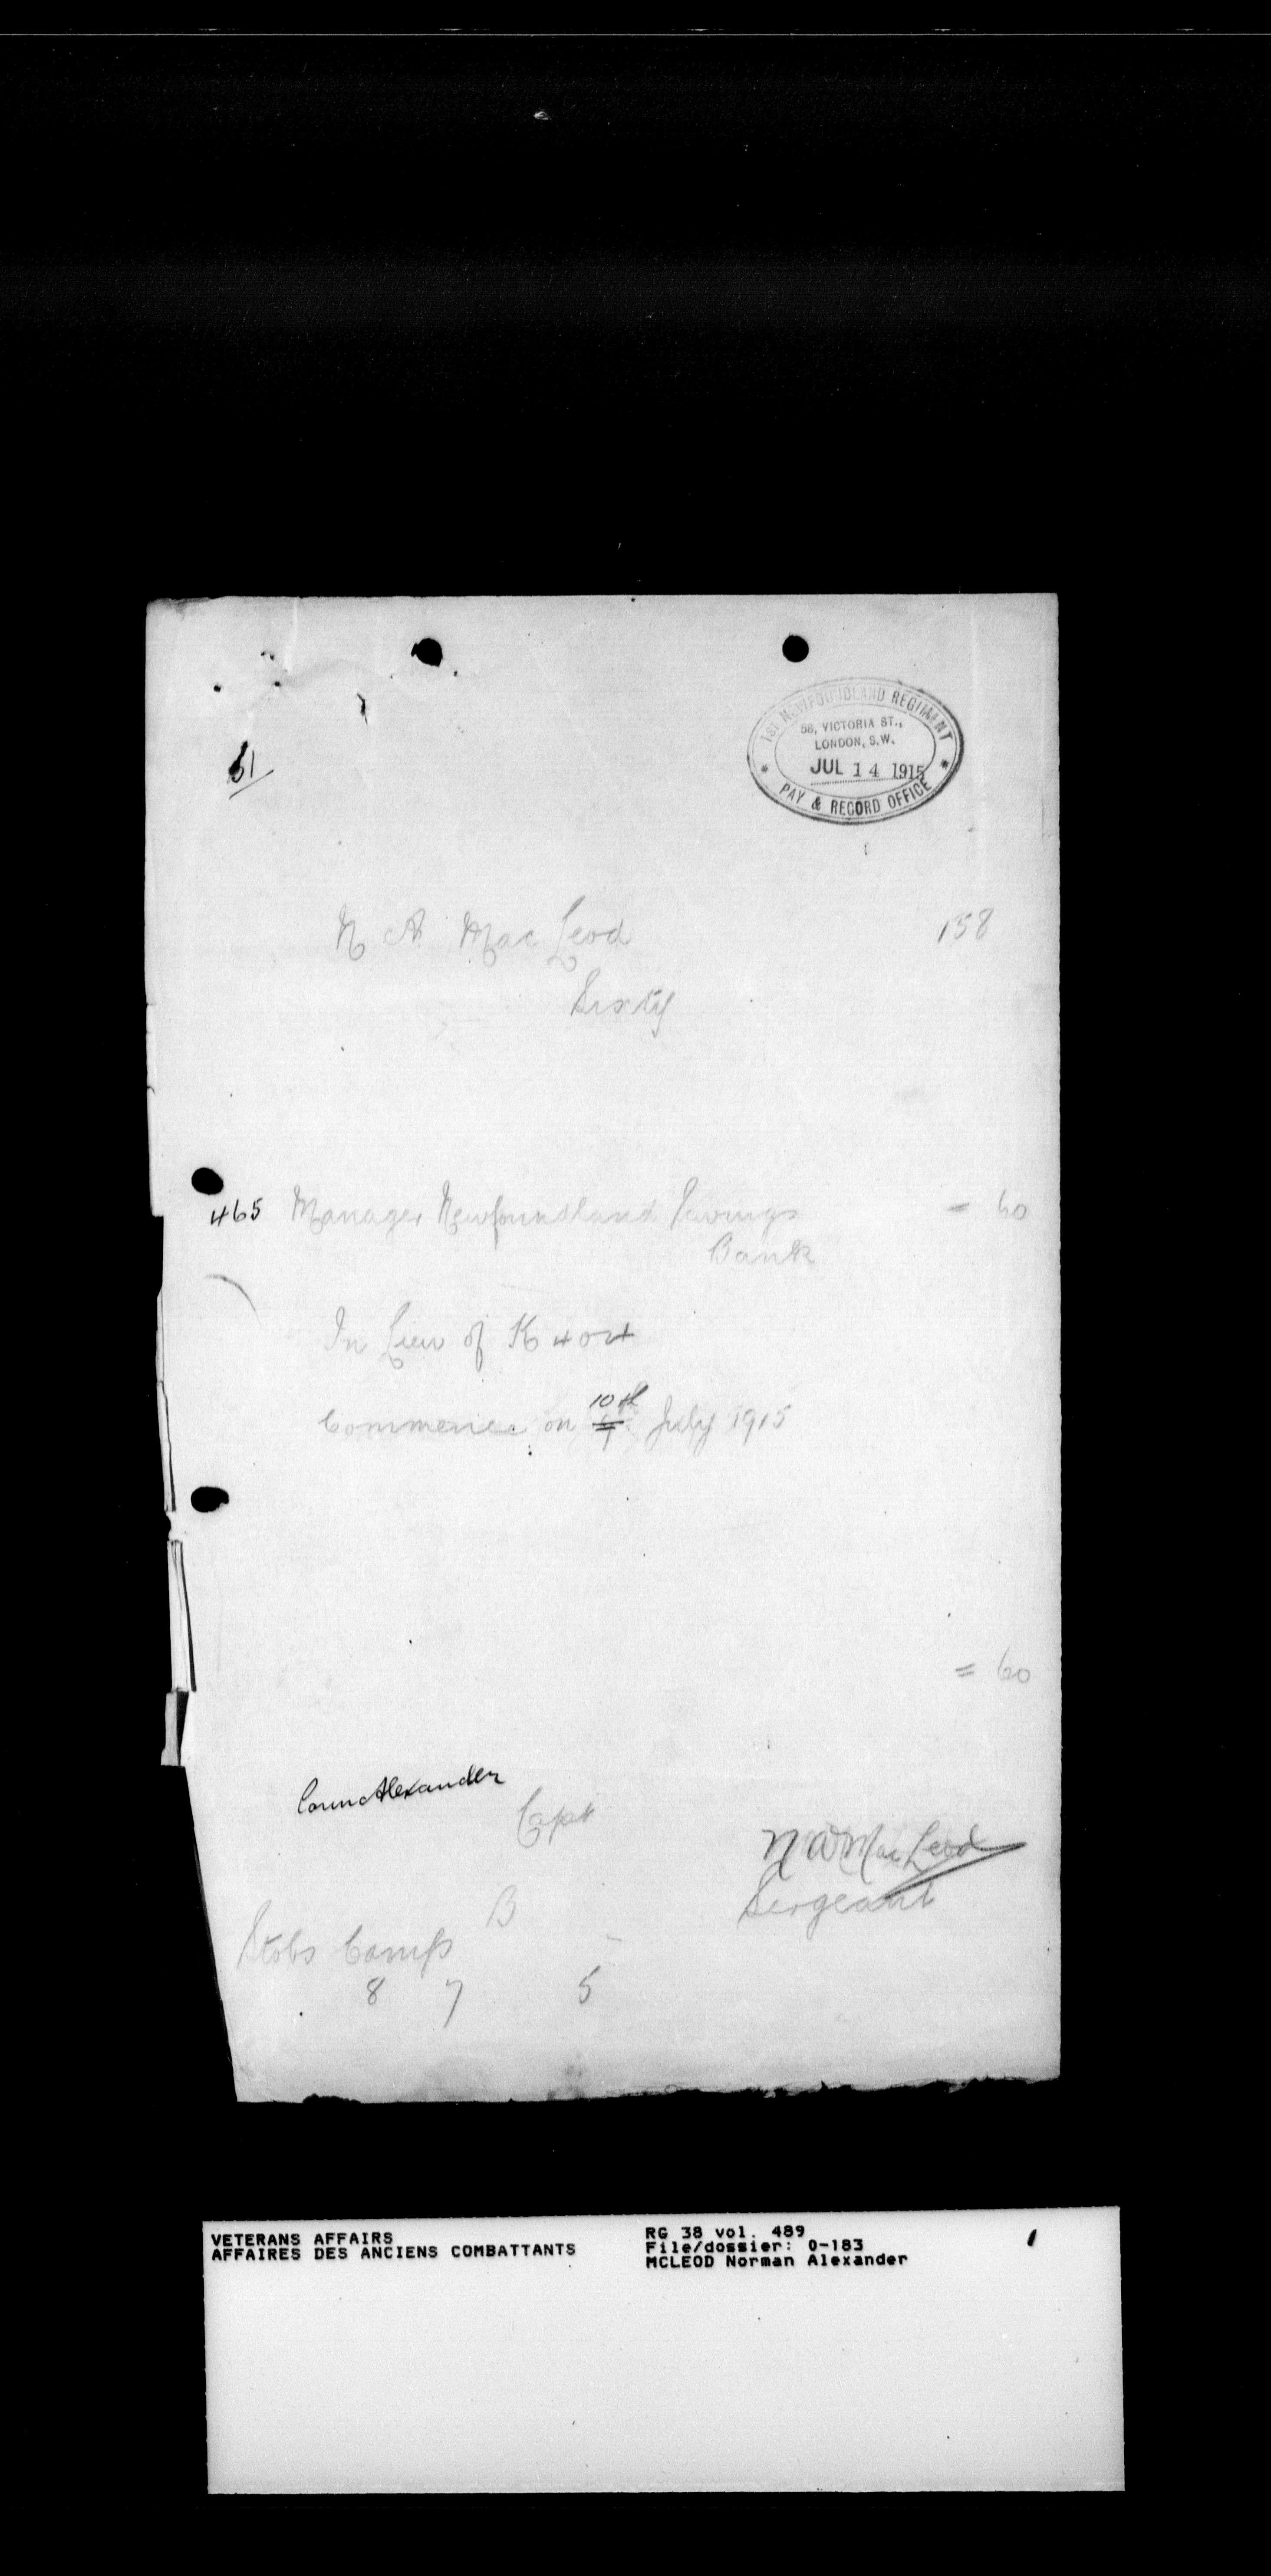 1ST NEWFOUNDLAND REGIMENT
58, VICTORIA ST.,
LONDON, S.W.
JUL 14 1915
PAY & RECORD OFFICE
61
N A MacLeod 158
Sixty
465 Manager Newfoundland Savings = 60
Bank
In Lieu of K 404
10th
Commence on July 1915
= 60
Alexander
Capt
N A MacLeod
Sergeant
B
Stobs Camp
8 7 5
VETERANS AFFAIRS
AFFAIRES DES ANCIENS COMBATTANTS
RG 38 vol. 489
File/dossier: 0-183
MCLEOD Norman Alexander
1